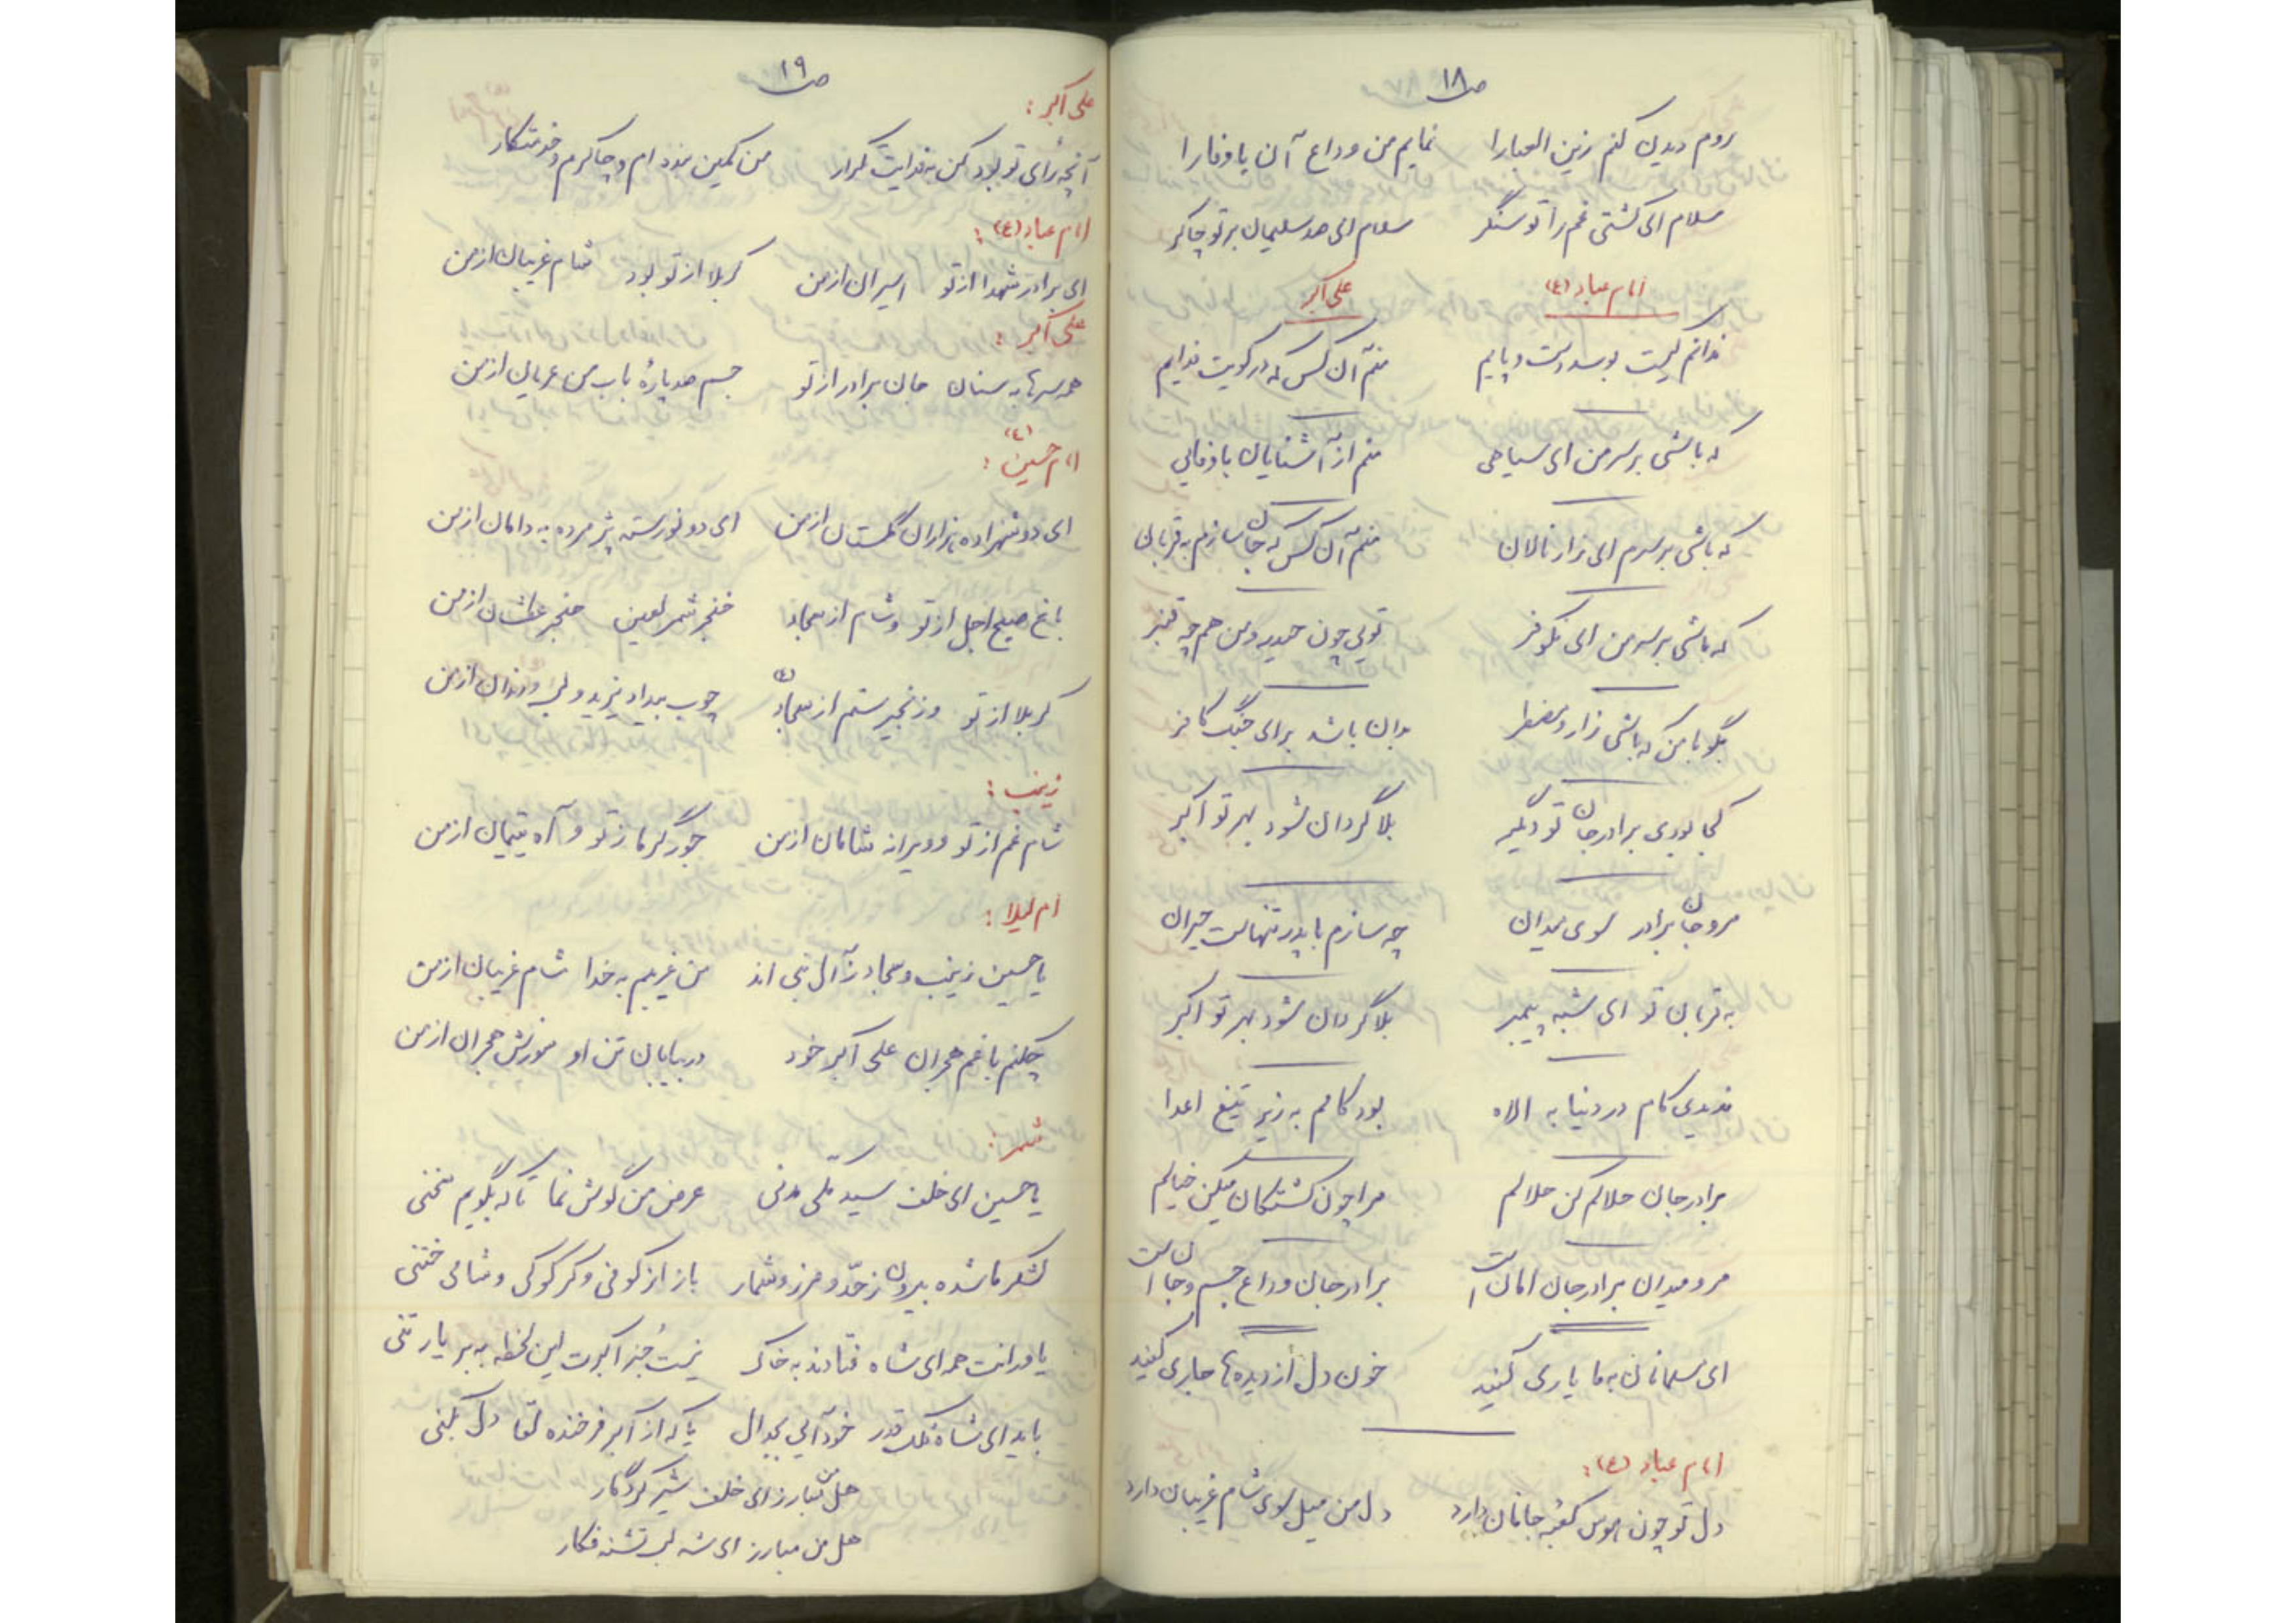 ص ۱۸
روم دیدن کنم زین العبا را نمایم من وداع آن باوفا را
سلام ای کشتی غم را تو لنگر سلام ای صد سلیمان بر تو چاکر
امام عباد (ع) علی اکبر
ندانم کیست بوسد دست و پایم منم آن کس که در کویت فدایم
که باشی بر سر من ای سیاحی منم از آشنایان باوفایی
که باشی بر سرم ای زار نالان منم آن کس که جان سازم به قربان
که باشی بر سر من ای نکوفر تویی چون حیدر و من هم چه قنبر
بگو با من که باشی زار و مضطر روان باشد برای جنگ کافر
کجا بودی برادر جان تو دیگر بلا گردان شود بهر تو اکبر
مرو جان برادر سوی میدان چه سازم با پدر تنهاست حیران
به قربان تو ای شبه پیمبر بلا گردان شود بهر تو اکبر
ندیدی کام در دنیا به الاه بود کامم به زیر تیغ اعدا
برادر جان حلالم کن حلالم مرا چون کشتگان میکن خیالم
مرو میدان برادر جان امان است برادر جان وداع جسم و جان است
ای مسلمانان به ما یاری کنید خون دل از دیده ها جاری کنید
امام عباد (ع) :
دل تو چون هوس کعبه جانان دارد دل من میل سوی شام غریبان دارد
ص ۱۹
علی اکبر :
آنچه رأی تو بود کن به فدایت کردار من کمین بنده ام و چاکرم و خدمتکار
امام عباد (ع) :
ای برادر شهدا از تو اسیران از من کربلا از تو بود شام غریبان از من
علی اکبر :
همه سرها به سنان جان برادر از تو جسم صد پارهٔ باب من عریان از من
امام حسین (ع) :
ای دو شهزاده هزاران گلستان از من ای دو نورسته پژمرده به دامان از من
باغ صبح اجل از تو و شام از سجاد خنجر شمر لعین حنجر عطشان از من
کربلا از تو و زنجیر ستم از سجاد (ع) چوب بیداد یزید و لب و دندان از من
زینب :
شام غم از تو و ویرانه شامان از من جور گرما ز تو و آه یتیمان از من
ام لیلا :
یا حسین زینب و سجاد ز آل نبی اند من غریبم به خدا شام غریبان از من
چکنم با غم هجران علی اکبر خود در بیابان تن او سوزش هجران از من
شمر :
یا حسین ای خلف سید مکی مدنی عرض من گوش نما تا که بگویم سخنی
لشکر ما شده بیرون ز حد و مرز و شمار باز از کوفی و کرکوکی و شامی ختنی
یاورانت همه ای شاه فتادند به خاک نیست جز اکبرت این لحظه به بر یار تنی
باید ای شاه فلک قدر خود آئی بجدال یا که از اکبر فرخنده لقا دل بکنی
هل من مبارز ای خلف شیر کردگار
هل من مبارز ای شه لب تشنه فکار